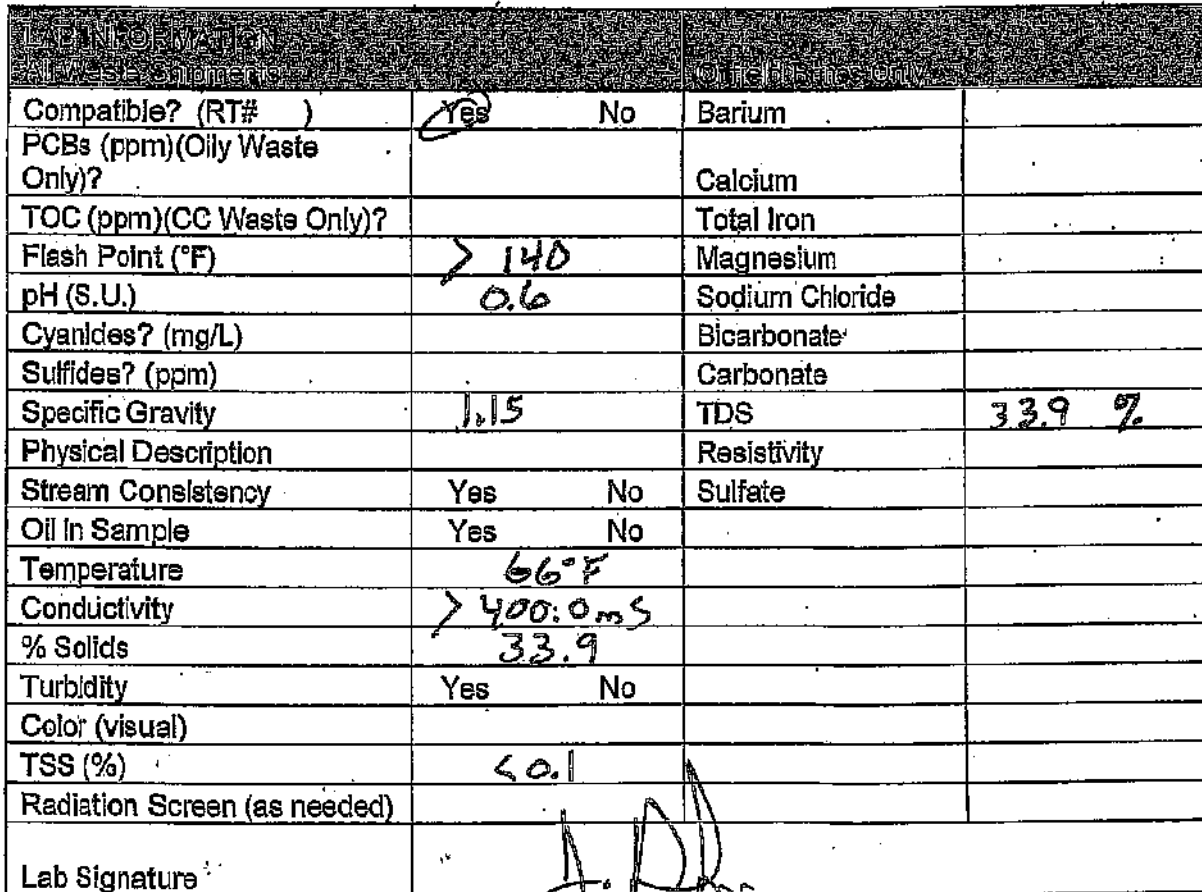 LAB INFORMATION
All Waste Shipments Oilfield Brines Only
Compatible? (RT# ) Yes No Barium
PCBs (ppm)(Oily Waste
Only)? Calcium
TOC (ppm)(CC Waste Only)? Total Iron
Flash Point (°F) > 140 Magnesium
pH (S.U.) 0.6 Sodium Chloride
Cyanides? (mg/L) Bicarbonate
Sulfides? (ppm) Carbonate
Specific Gravity 1.15 TDS 33.9 %
Physical Description Resistivity
Stream Consistency Yes No Sulfate
Oil in Sample Yes No
Temperature 66°F
Conductivity > 400.0 mS
% Solids 33.9
Turbidity Yes No
Color (visual)
TSS (%) < 0.1
Radiation Screen (as needed)
Lab Signature